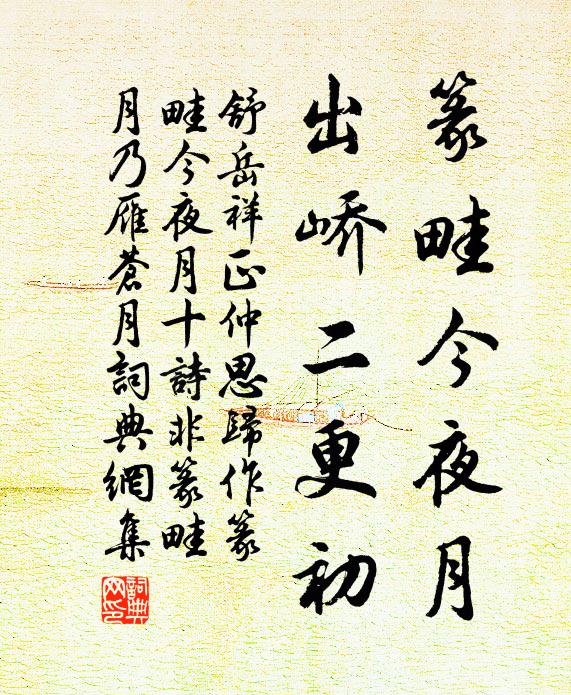 篆畦今夜月
出嶠二更初
舒岳祥正仲思歸作篆
畦今夜月十詩非篆畦
月乃雁蒼月詞典網集
詞典网印